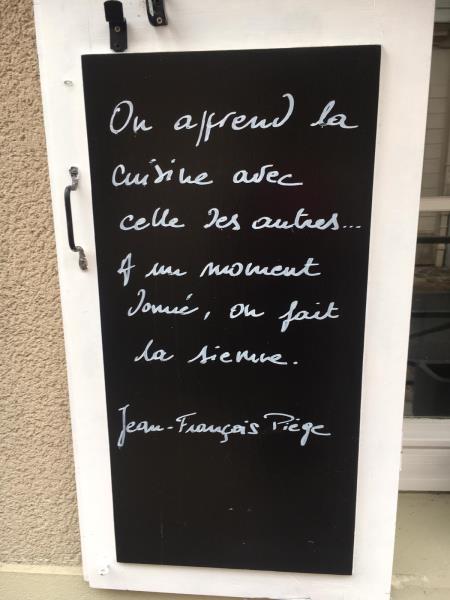 On apprend la
cuisine avec
celle des autres...
A un moment
donné, on fait
la sienne.
Jean-François Piège